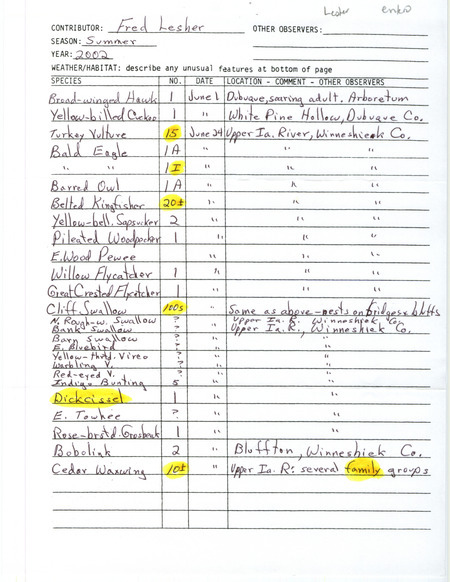 Lesher enko
CONTRIBUTOR: Fred Lesher OTHER OBSERVERS:
SEASON: Summer
YEAR: 2002
WEATHER/HABITAT: describe any unusual features at bottom of page
SPECIES NO. DATE LOCATION - COMMENT - OTHER OBSERVERS
Broad-winged Hawk 1 June 1 Dubuque, soaring adult. Arboretum
Yellow-billed Cuckoo 1 " White Pine Hollow, Dubuque Co.
Turkey Vulture 15 June 24 Upper Ia. River, Winneshiek Co.
Bald Eagle 1A " " "
" " 1I " " "
Barred Owl 1A " " "
Belted Kingfisher 20± " " "
Yellow-bell. Sapsucker 2 " " "
Pileated Woodpecker 1 " " "
E. Wood Pewee " " "
Willow Flycatcher 1 " " "
Great Crested Flycatcher 1 " " "
Cliff Swallow 100s " Same as above - nests on bridges & bluffs
N. Rough-w. Swallow ? " Upper Ia. R. Winneshiek Co.
Bank Swallow ? " Upper Ia. R., Winneshiek Co.
Barn Swallow ? " "
E. Bluebird ? " "
Yellow-thrtd. Vireo ? " "
Warbling V. ? " "
Red-eyed V. ? " "
Indigo Bunting 5 " "
Dickcissel 1 " "
E. Towhee ? " "
Rose-brstd. Grosbeak 1 " "
Bobolink 2 " Bluffton, Winneshiek Co.
Cedar Waxwing 10± " Upper Ia. R: several family groups